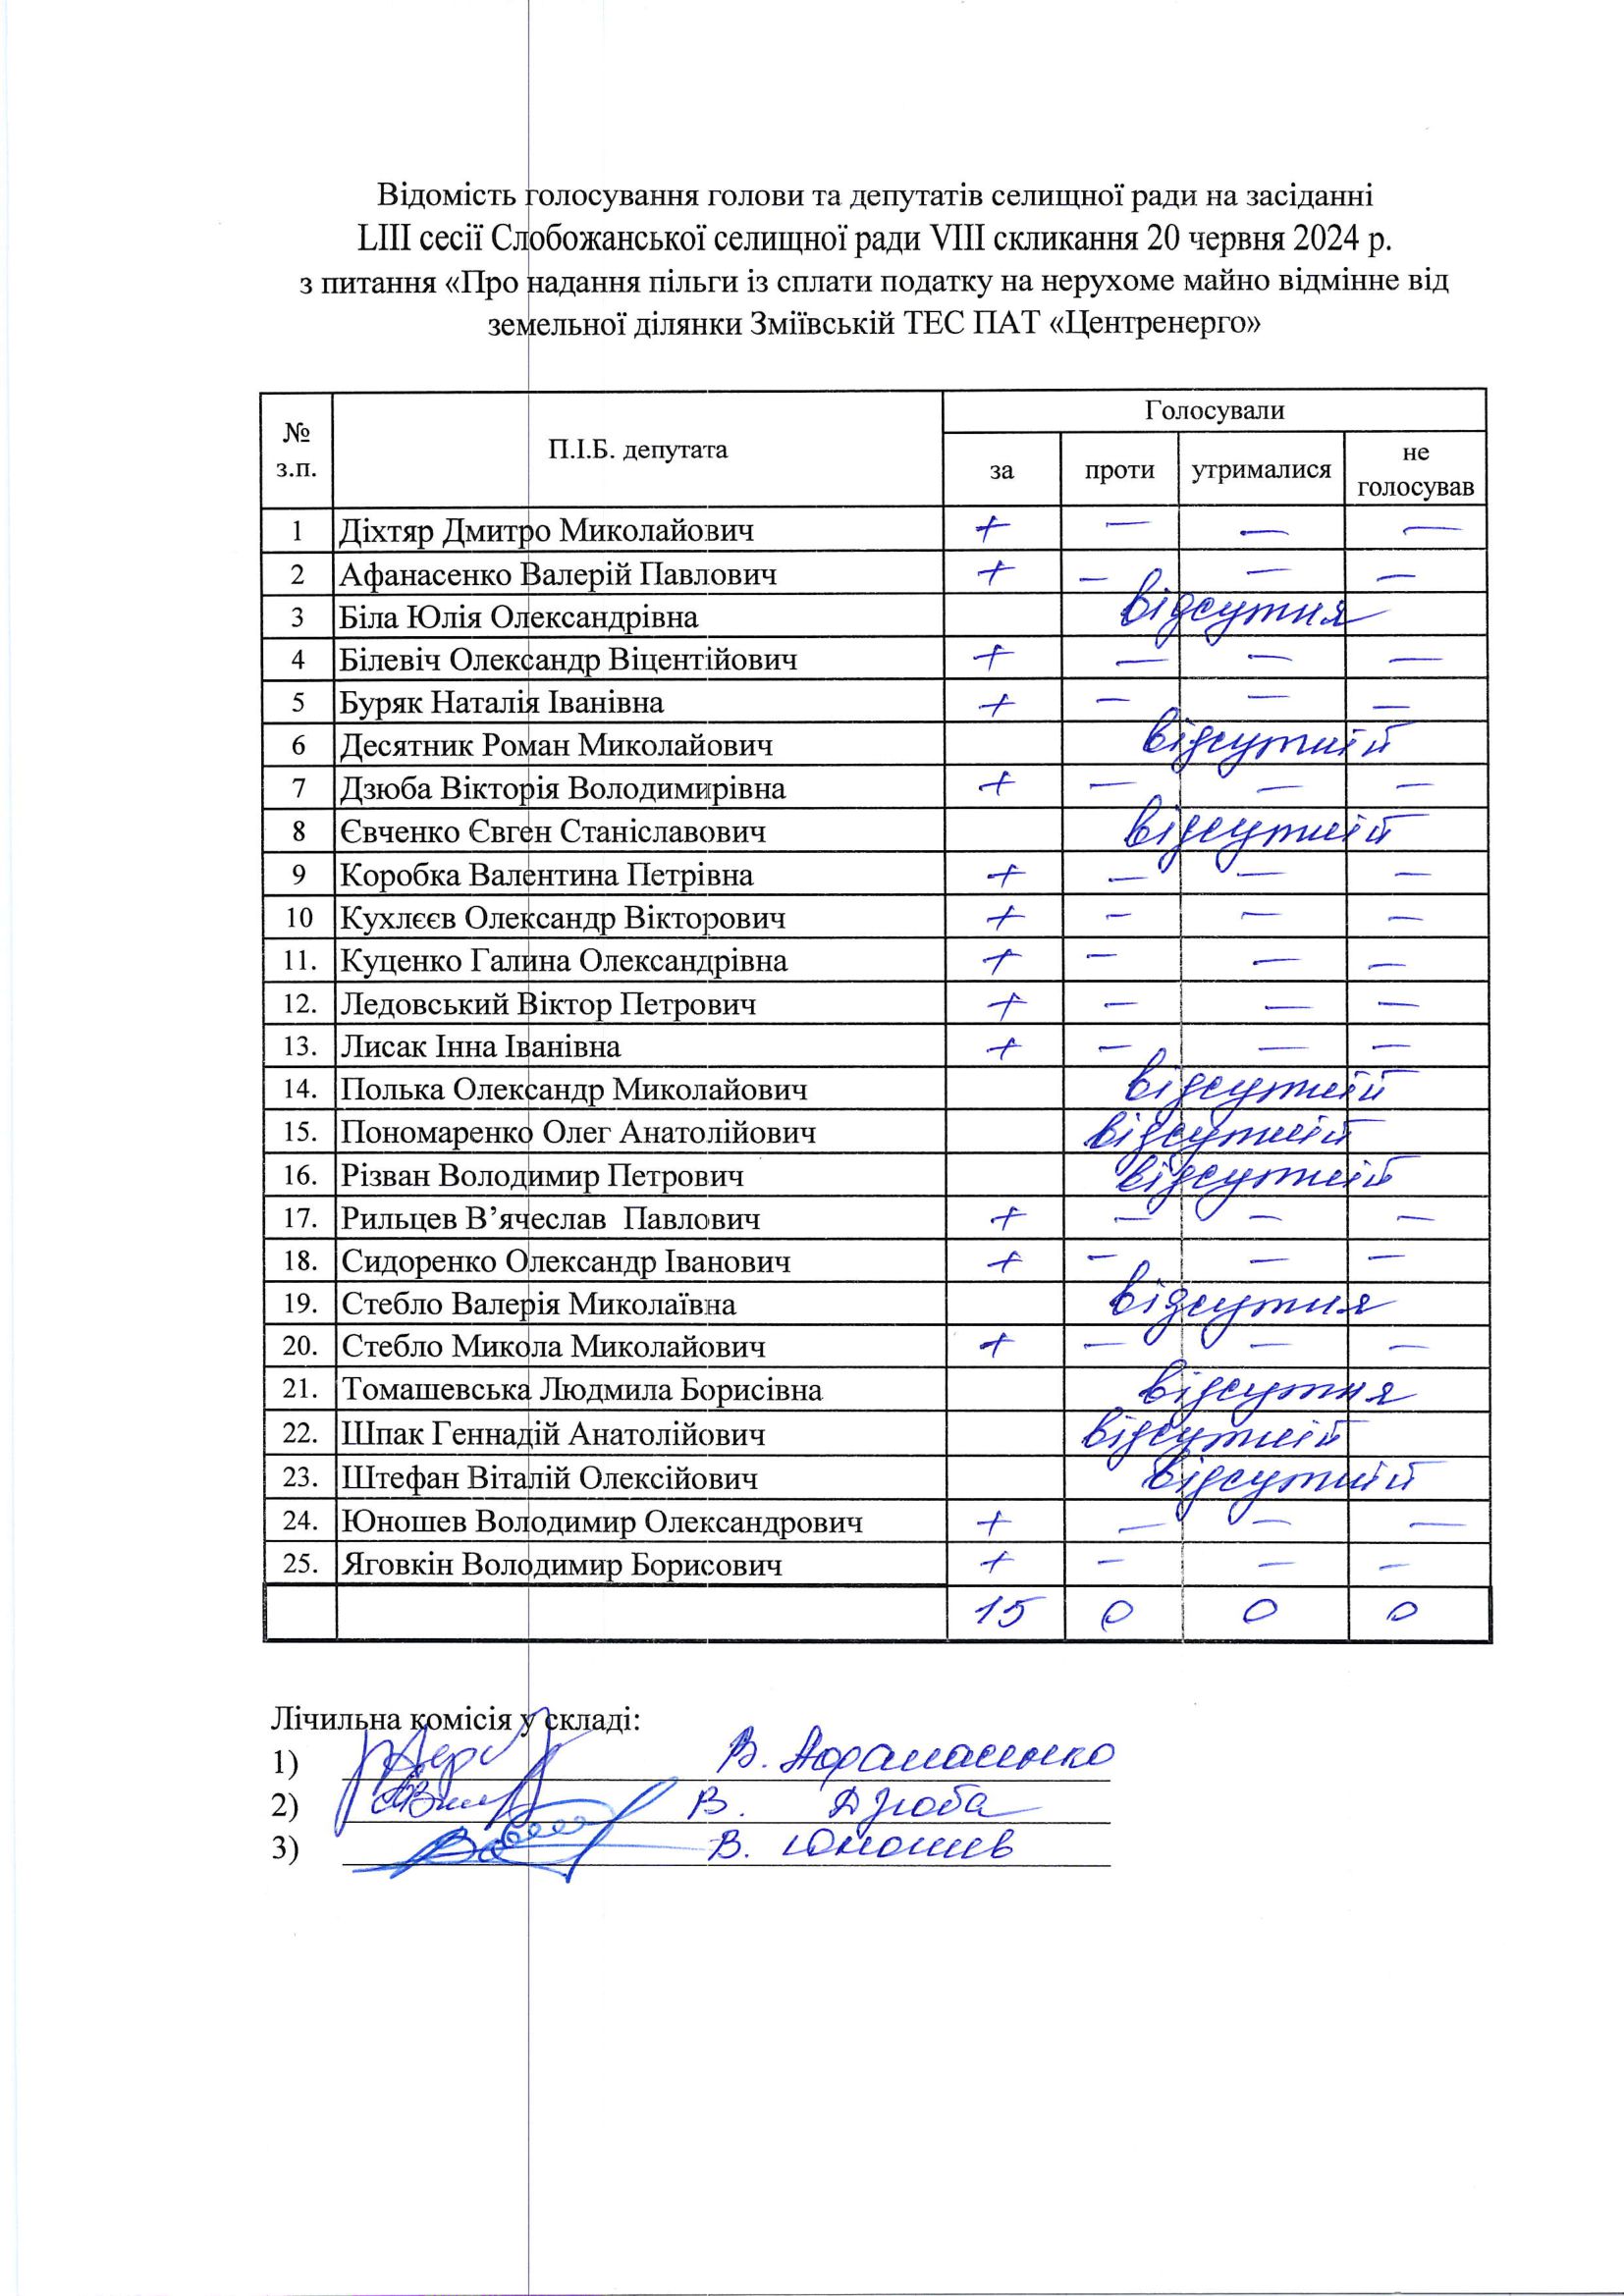 Відомість голосування голови та депутатів селищної ради на засіданні
LIII сесії Слобожанської селищної ради VIII скликання 20 червня 2024 р.
з питання «Про надання пільги із сплати податку на нерухоме майно відмінне від
земельної ділянки Зміївській ТЕС ПАТ «Центренерго»
№ з.п. П.І.Б. депутата Голосували
за проти утрималися не голосував
1 Діхтяр Дмитро Миколайович + — — —
2 Афанасенко Валерій Павлович + — — —
3 Біла Юлія Олександрівна відсутня
4 Білевіч Олександр Віцентійович + — — —
5 Буряк Наталія Іванівна + — — —
6 Десятник Роман Миколайович відсутній
7 Дзюба Вікторія Володимирівна + — — —
8 Євченко Євген Станіславович відсутній
9 Коробка Валентина Петрівна + — — —
10 Кухлєєв Олександр Вікторович + — — —
11. Куценко Галина Олександрівна + — — —
12. Ледовський Віктор Петрович + — — —
13. Лисак Інна Іванівна + — — —
14. Полька Олександр Миколайович відсутній
15. Пономаренко Олег Анатолійович відсутній
16. Різван Володимир Петрович відсутній
17. Рильцев В’ячеслав Павлович + — — —
18. Сидоренко Олександр Іванович + — — —
19. Стебло Валерія Миколаївна відсутня
20. Стебло Микола Миколайович + — — —
21. Томашевська Людмила Борисівна відсутня
22. Шпак Геннадій Анатолійович відсутній
23. Штефан Віталій Олексійович відсутній
24. Юношев Володимир Олександрович + — — —
25. Яговкін Володимир Борисович + — — —
15 0 0 0
Лічильна комісія у складі:
1) В. Афанасенко
2) В. Дзюба
3) В. Юношев